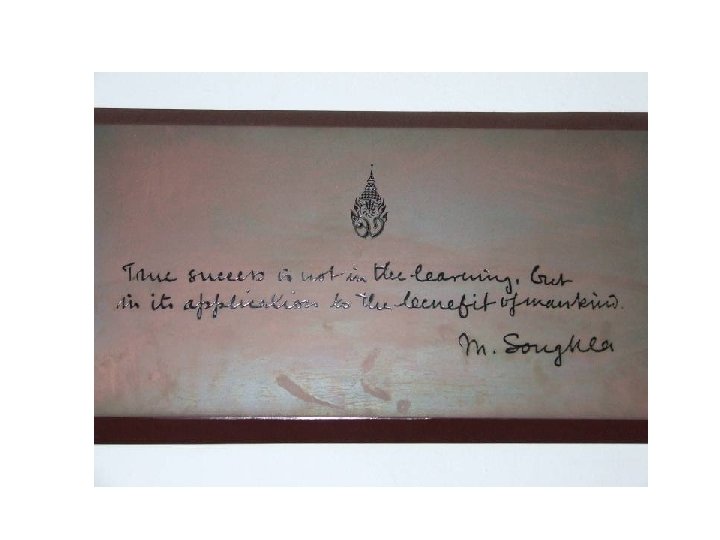 True success is not in the learning, but
in its application to the benefit of mankind.
M. Songkla